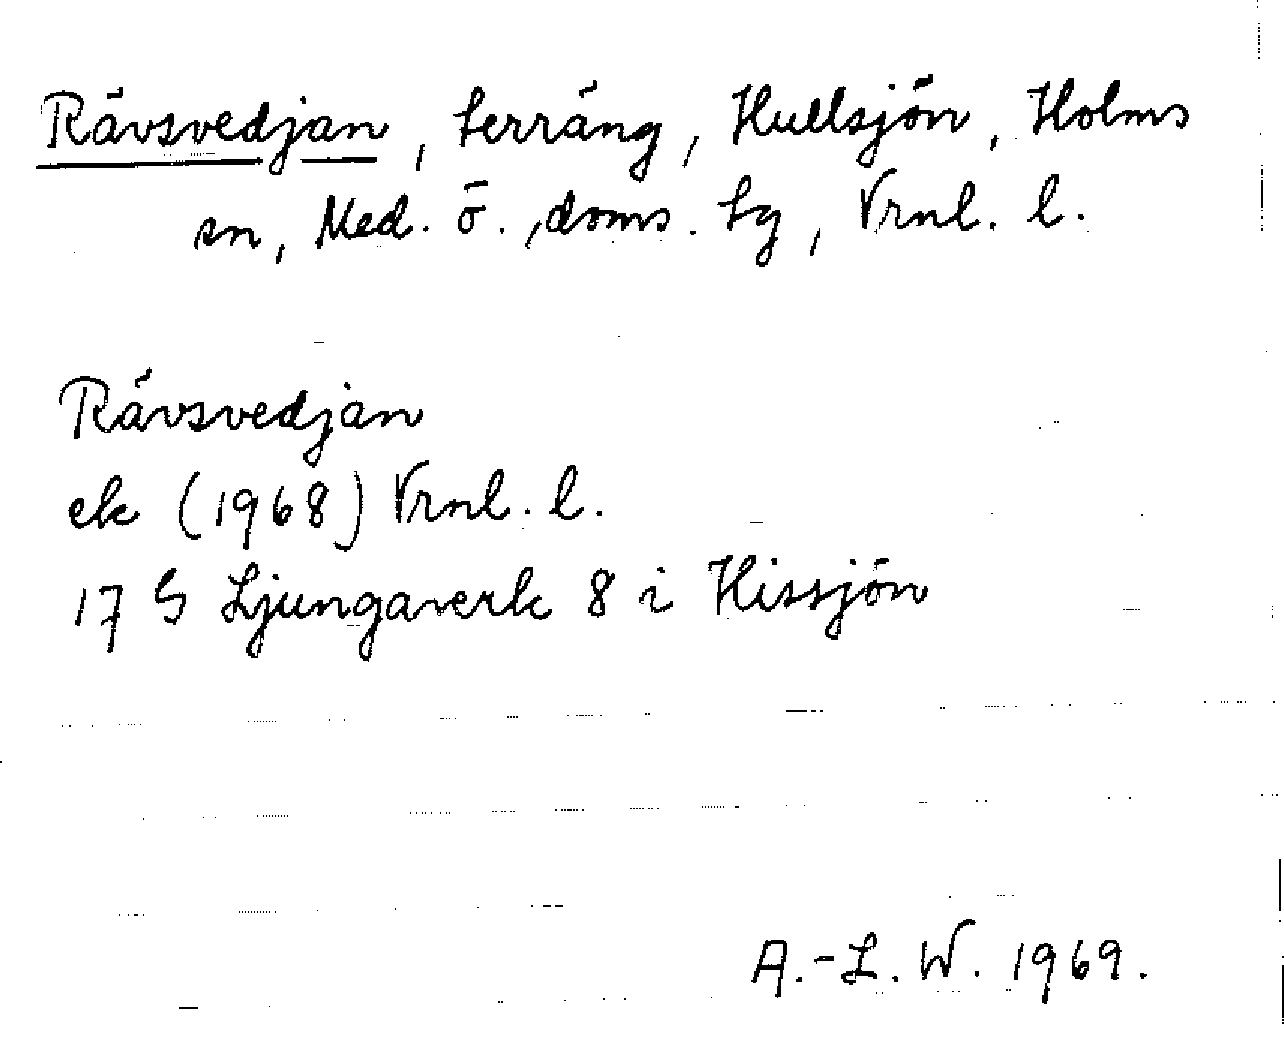 Rävsvedjan, terräng, Hullsjön, Holms
sn, Med. ö., doms. tg, Vrnl. l.
Rävsvedjan
ek (1968) Vrnl. l.
17 G Ljungaverk 8 i Hissjön
A.-L. W. 1969.